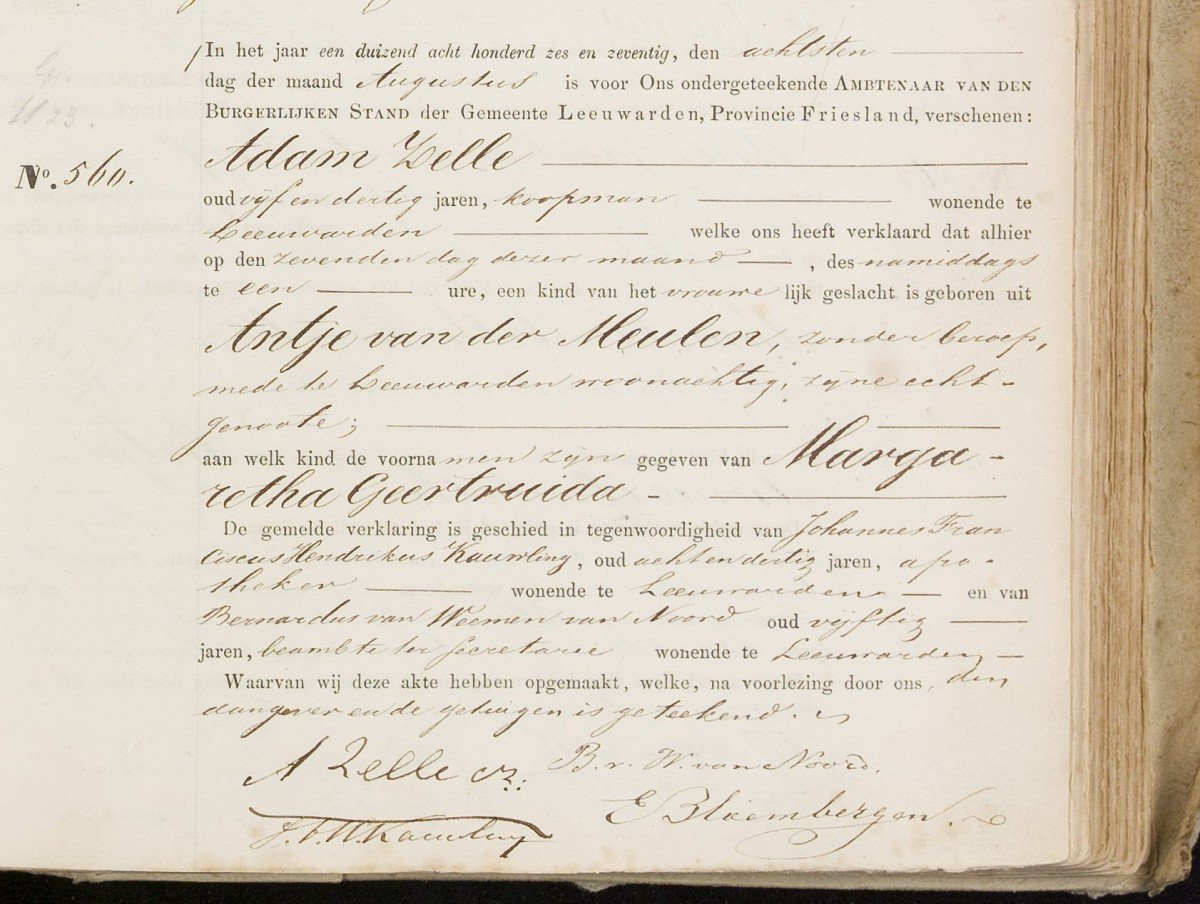 In het jaar een duizend acht honderd zes en zeventig, den achtsten
dag der maand Augustus is voor Ons ondergeteekende AMBTENAAR VAN DEN
BURGERLIJKEN STAND der Gemeente Leeuwarden, Provincie Friesland, verschenen:
Adam Zelle
No. 560.
oud vijf en dertig jaren, koopman wonende te
Leeuwarden welke ons heeft verklaard dat alhier
op den zevenden dag dezer maand, des namiddags
te een ure, een kind van het vrouwelijk geslacht is geboren uit
Antje van der Meulen, zonder beroep,
mede te Leeuwarden woonachtig, zijne echt-
genoote;
aan welk kind de voornamen zijn gegeven van Marga-
retha Geertruida -
De gemelde verklaring is geschied in tegenwoordigheid van Johannes Fran
ciscus Hendrikus Kauwling, oud acht en dertig jaren, apo-
theker wonende te Leeuwarden en van
Bernardus van Weemen van Noord oud vijftig
jaren, beambte ter secretarie wonende te Leeuwarden
Waarvan wij deze akte hebben opgemaakt, welke, na voorlezing door ons, den
aangever en de getuigen is geteekend.
A Zelle Cz: B. v. W. van Noord.
J.F.H. Kauwling E Bloembergen.